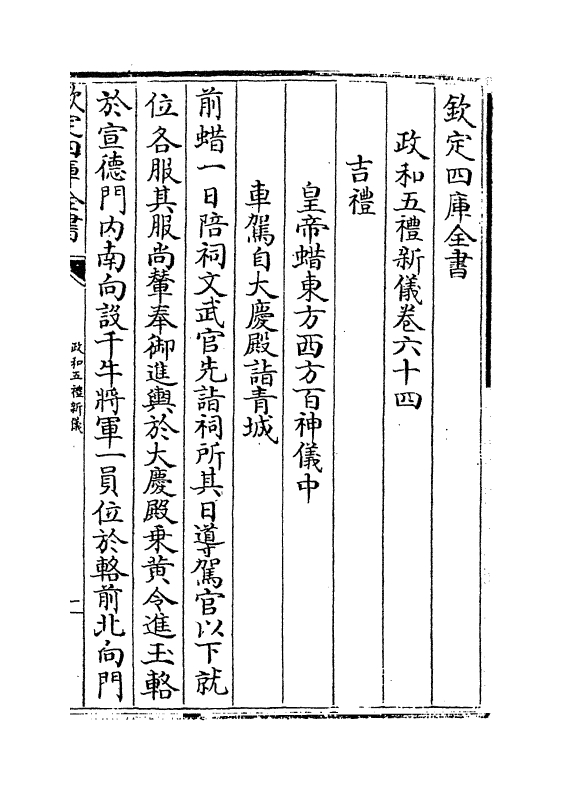 欽定四庫全書
政和五禮新儀卷六十四
吉禮
皇帝蜡東方西方百神儀中
車駕自大慶殿詣青城
前蜡一日陪祠文武官先詣祠所其日導駕官以下就
位各服其服尚輦奉御進輿於大慶殿乗黄令進玉輅
於宣德門内南向設千牛將軍一員位於輅前北向門
欽定四庫全書
政和五禮新儀
一